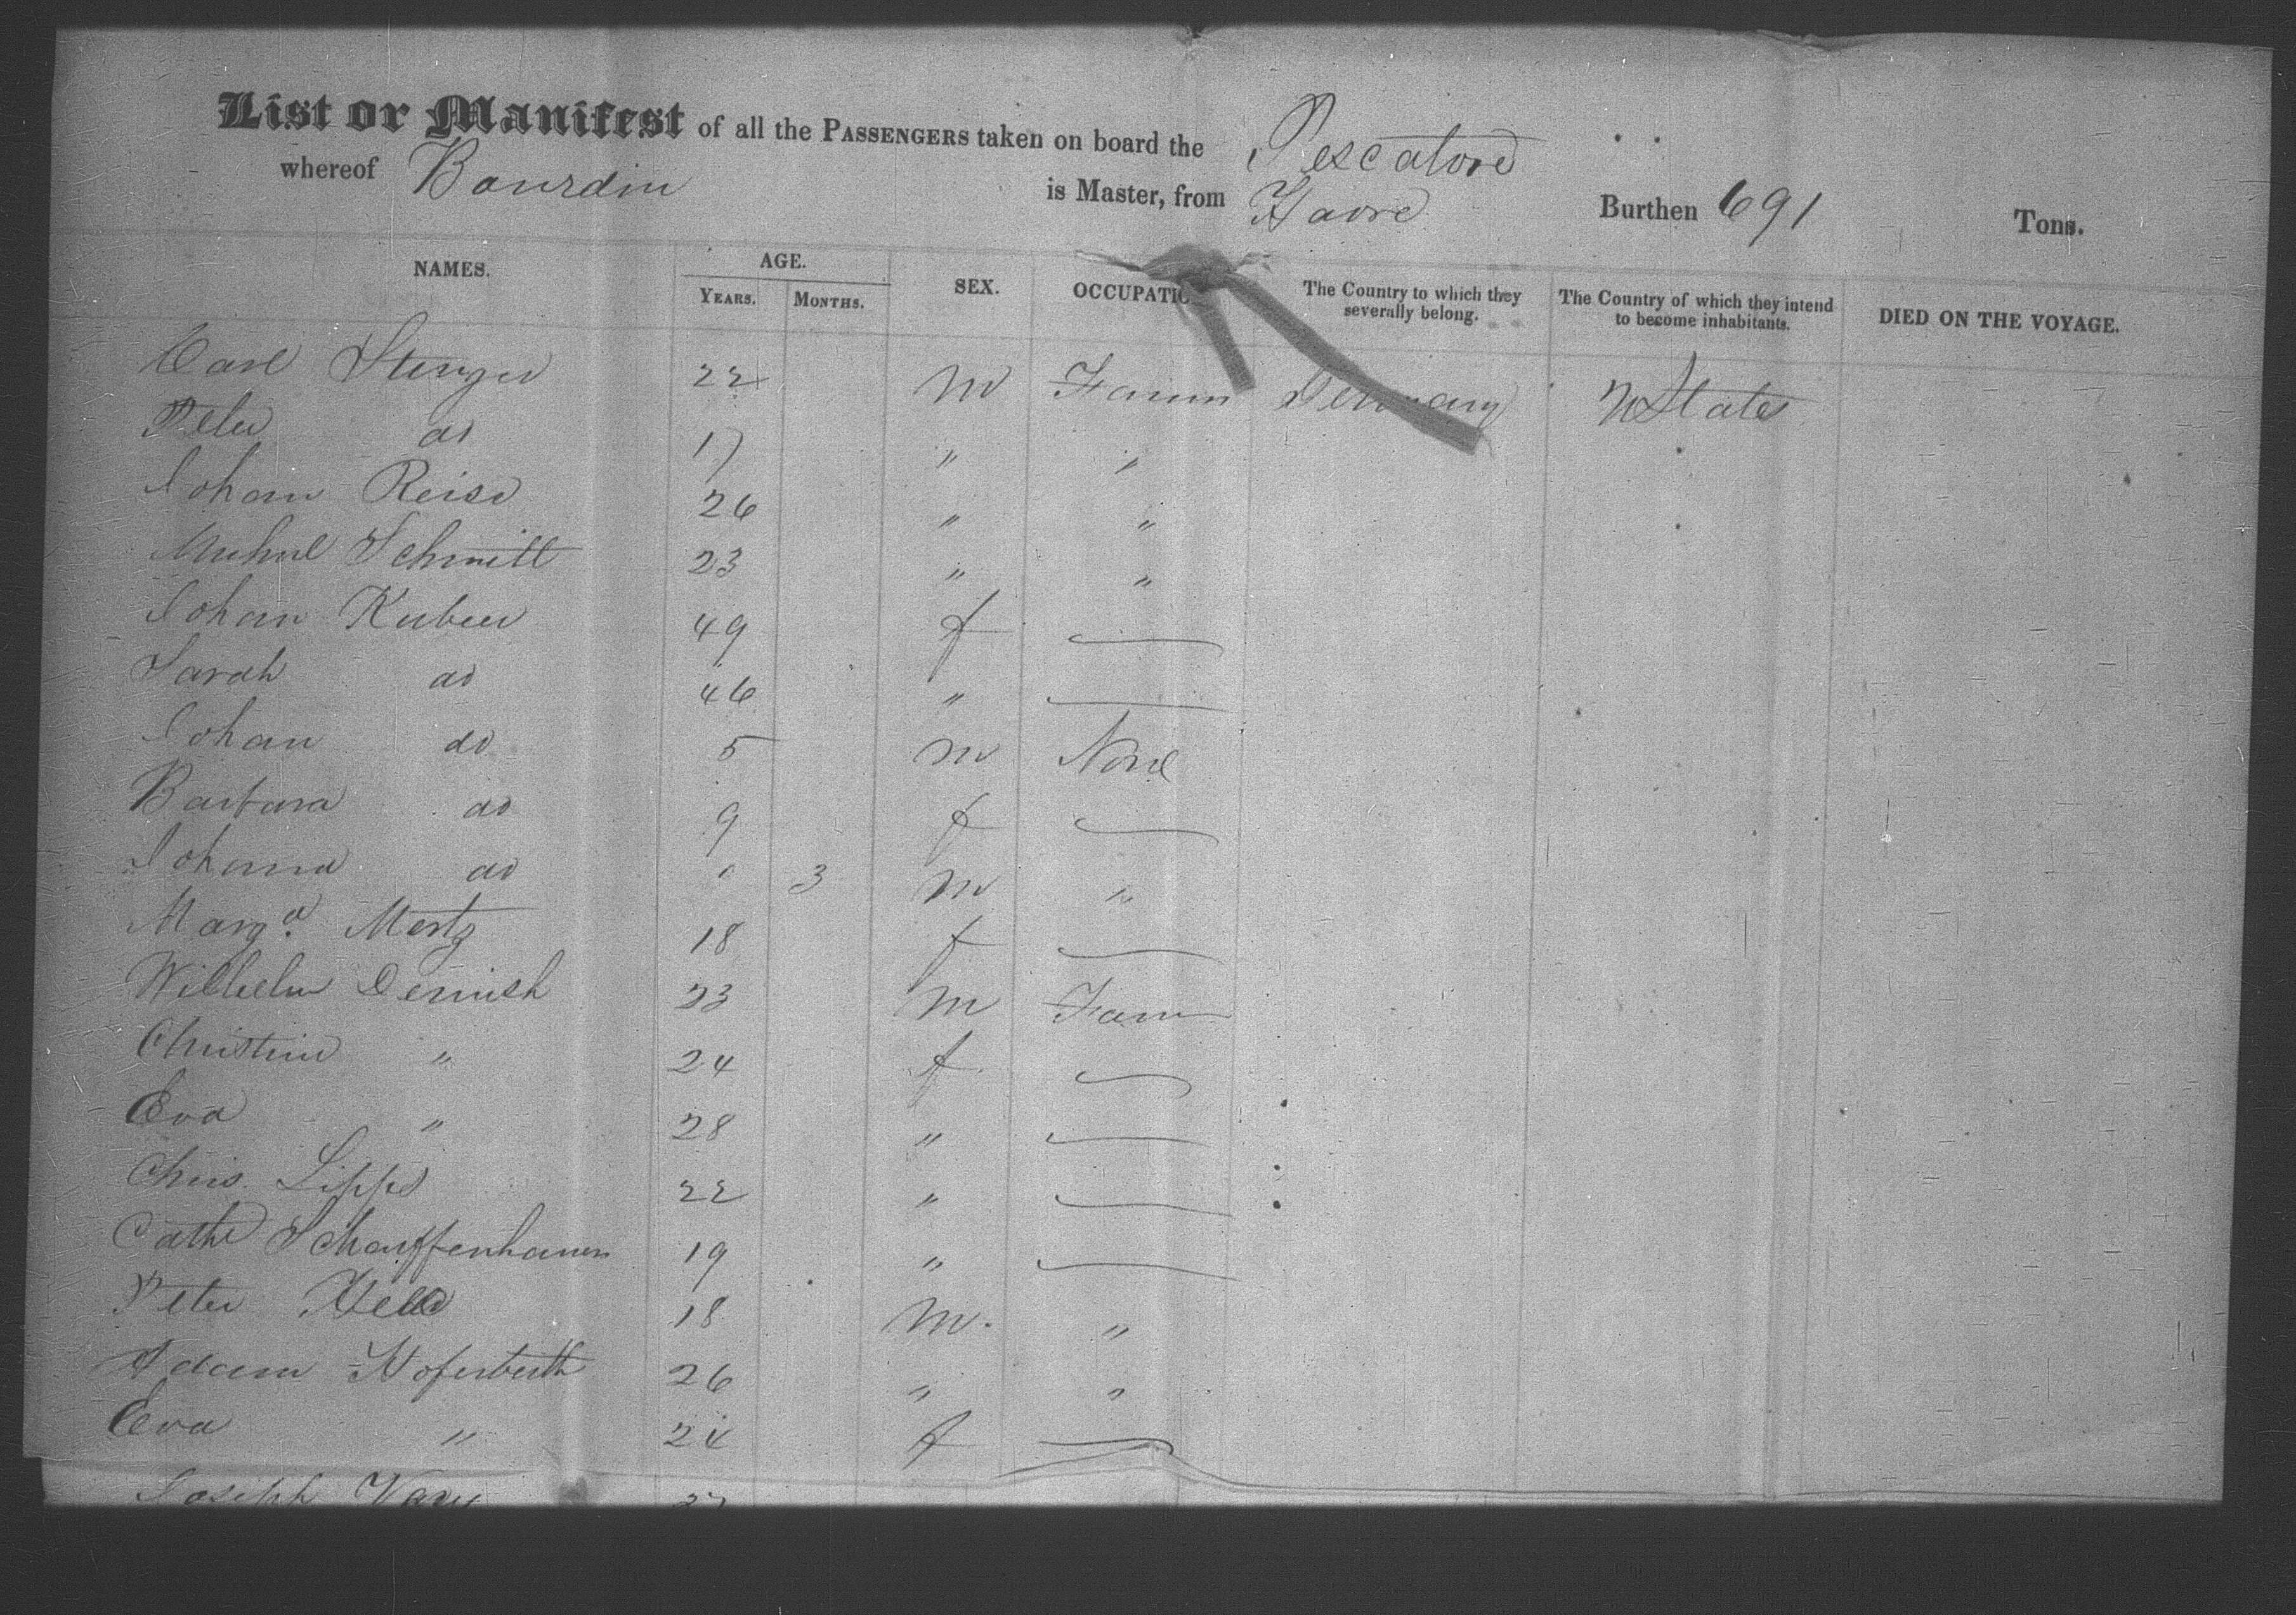 List or Manifest of all the PASSENGERS taken on board the Pescatore
whereof Bourdin is Master, from Havre Burthen 691 Tons.
NAMES. AGE. SEX. OCCUPATIO The Country to which they severally belong. The Country of which they intend to become inhabitants. DIED ON THE VOYAGE.
YEARS. MONTHS.
Carl Stenger 22 M Farm Germany UStates
Peter do 17 " "
Johan Reise 26 " "
Michael Schmitt 23 " "
Johan Kuber 49 f
Sarah do 46 "
Johan do 5 M None
Barbara do 9 f
Johana do 0 3 M "
Marga. Mertz 18 f
Wilhelm 23 M Farm
Christine " 24 f
Eva " 28 "
Chris. Lippe 22 "
Cathe 19 "
Peter 18 M. "
Adam Hoferberth 26 " "
Eva " 24 f
Joseph Vary 27